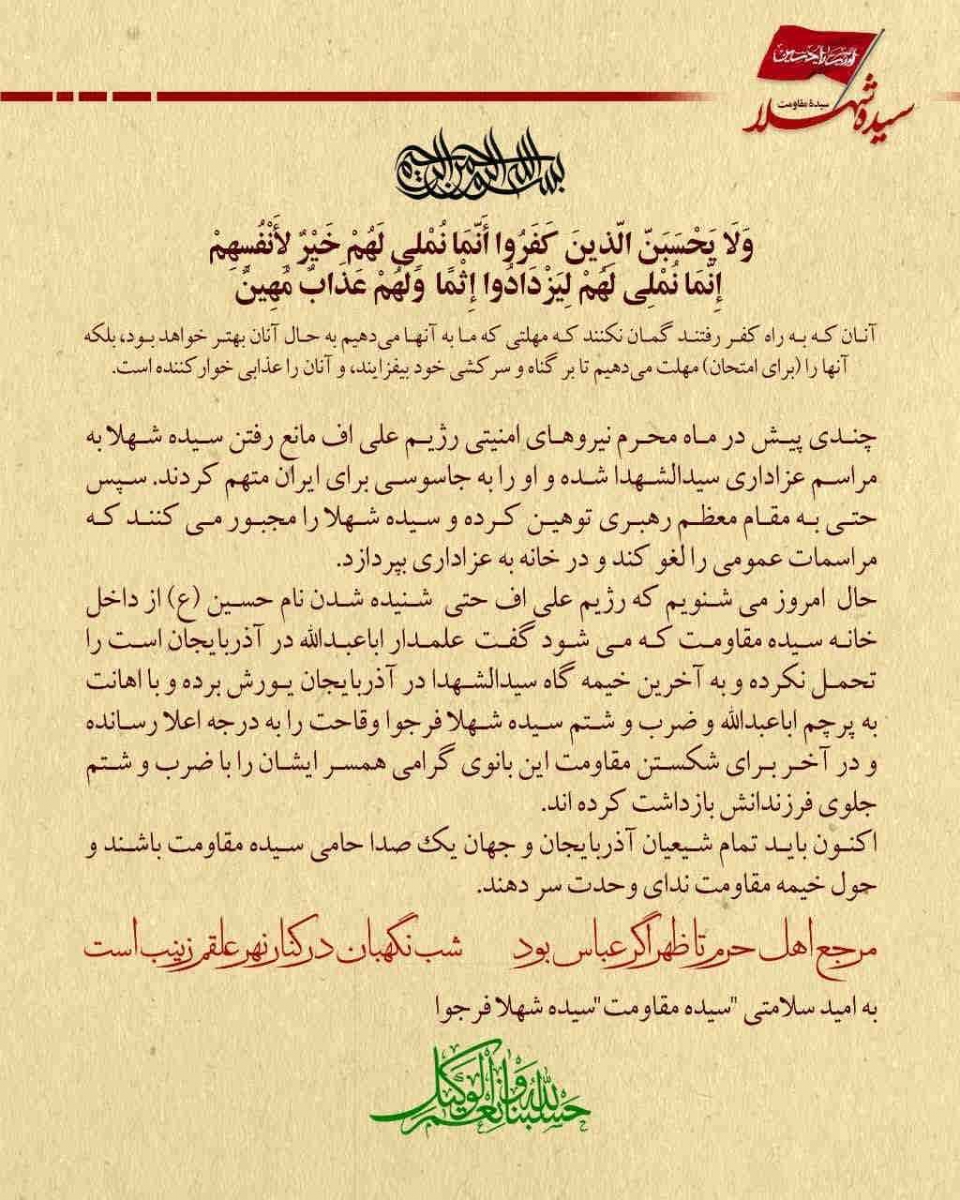 سیدهٔ مقاومت
سیده شهلا
بسم الله الرحمن الرحیم
وَلَا يَحْسَبَنَّ الَّذِينَ كَفَرُوا أَنَّمَا نُمْلِي لَهُمْ خَيْرٌ لِأَنْفُسِهِمْ
إِنَّمَا نُمْلِي لَهُمْ لِيَزْدَادُوا إِثْمًا وَلَهُمْ عَذَابٌ مُهِينٌ
آنان که به راه کفر رفتند گمان نکنند که مهلتی که ما به آنها می‌دهیم به حال آنان بهتر خواهد بود، بلکه
آنها را (برای امتحان) مهلت می‌دهیم تا بر گناه و سرکشی خود بیفزایند، و آنان را عذابی خوارکننده است.
چندی پیش در ماه محرم نیروهای امنیتی رژیم علی اف مانع رفتن سیده شهلا به
مراسم عزاداری سیدالشهدا شده و او را به جاسوسی برای ایران متهم کردند. سپس
حتی به مقام معظم رهبری توهین کرده و سیده شهلا را مجبور می کنند که
مراسمات عمومی را لغو کند و در خانه به عزاداری بپردازد.
حال امروز می شنویم که رژیم علی اف حتی شنیده شدن نام حسین (ع) از داخل
خانه سیده مقاومت که می شود گفت علمدار اباعبدالله در آذربایجان است را
تحمل نکرده و به آخرین خیمه گاه سیدالشهدا در آذربایجان یورش برده و با اهانت
به پرچم اباعبدالله و ضرب و شتم سیده شهلا فرجوا وقاحت را به درجه اعلا رسانده
و در آخر برای شکستن مقاومت این بانوی گرامی همسر ایشان را با ضرب و شتم
جلوی فرزندانش بازداشت کرده اند.
اکنون باید تمام شیعیان آذربایجان و جهان یک صدا حامی سیده مقاومت باشند و
حول خیمه مقاومت ندای وحدت سر دهند.
مرجع اهل حرم تا ظهر اگر عباس بود شب نگهبان در کنار نهر علقم زینب است
به امید سلامتی "سیده مقاومت"سیده شهلا فرجوا
حسبنا الله و نعم الوکیل